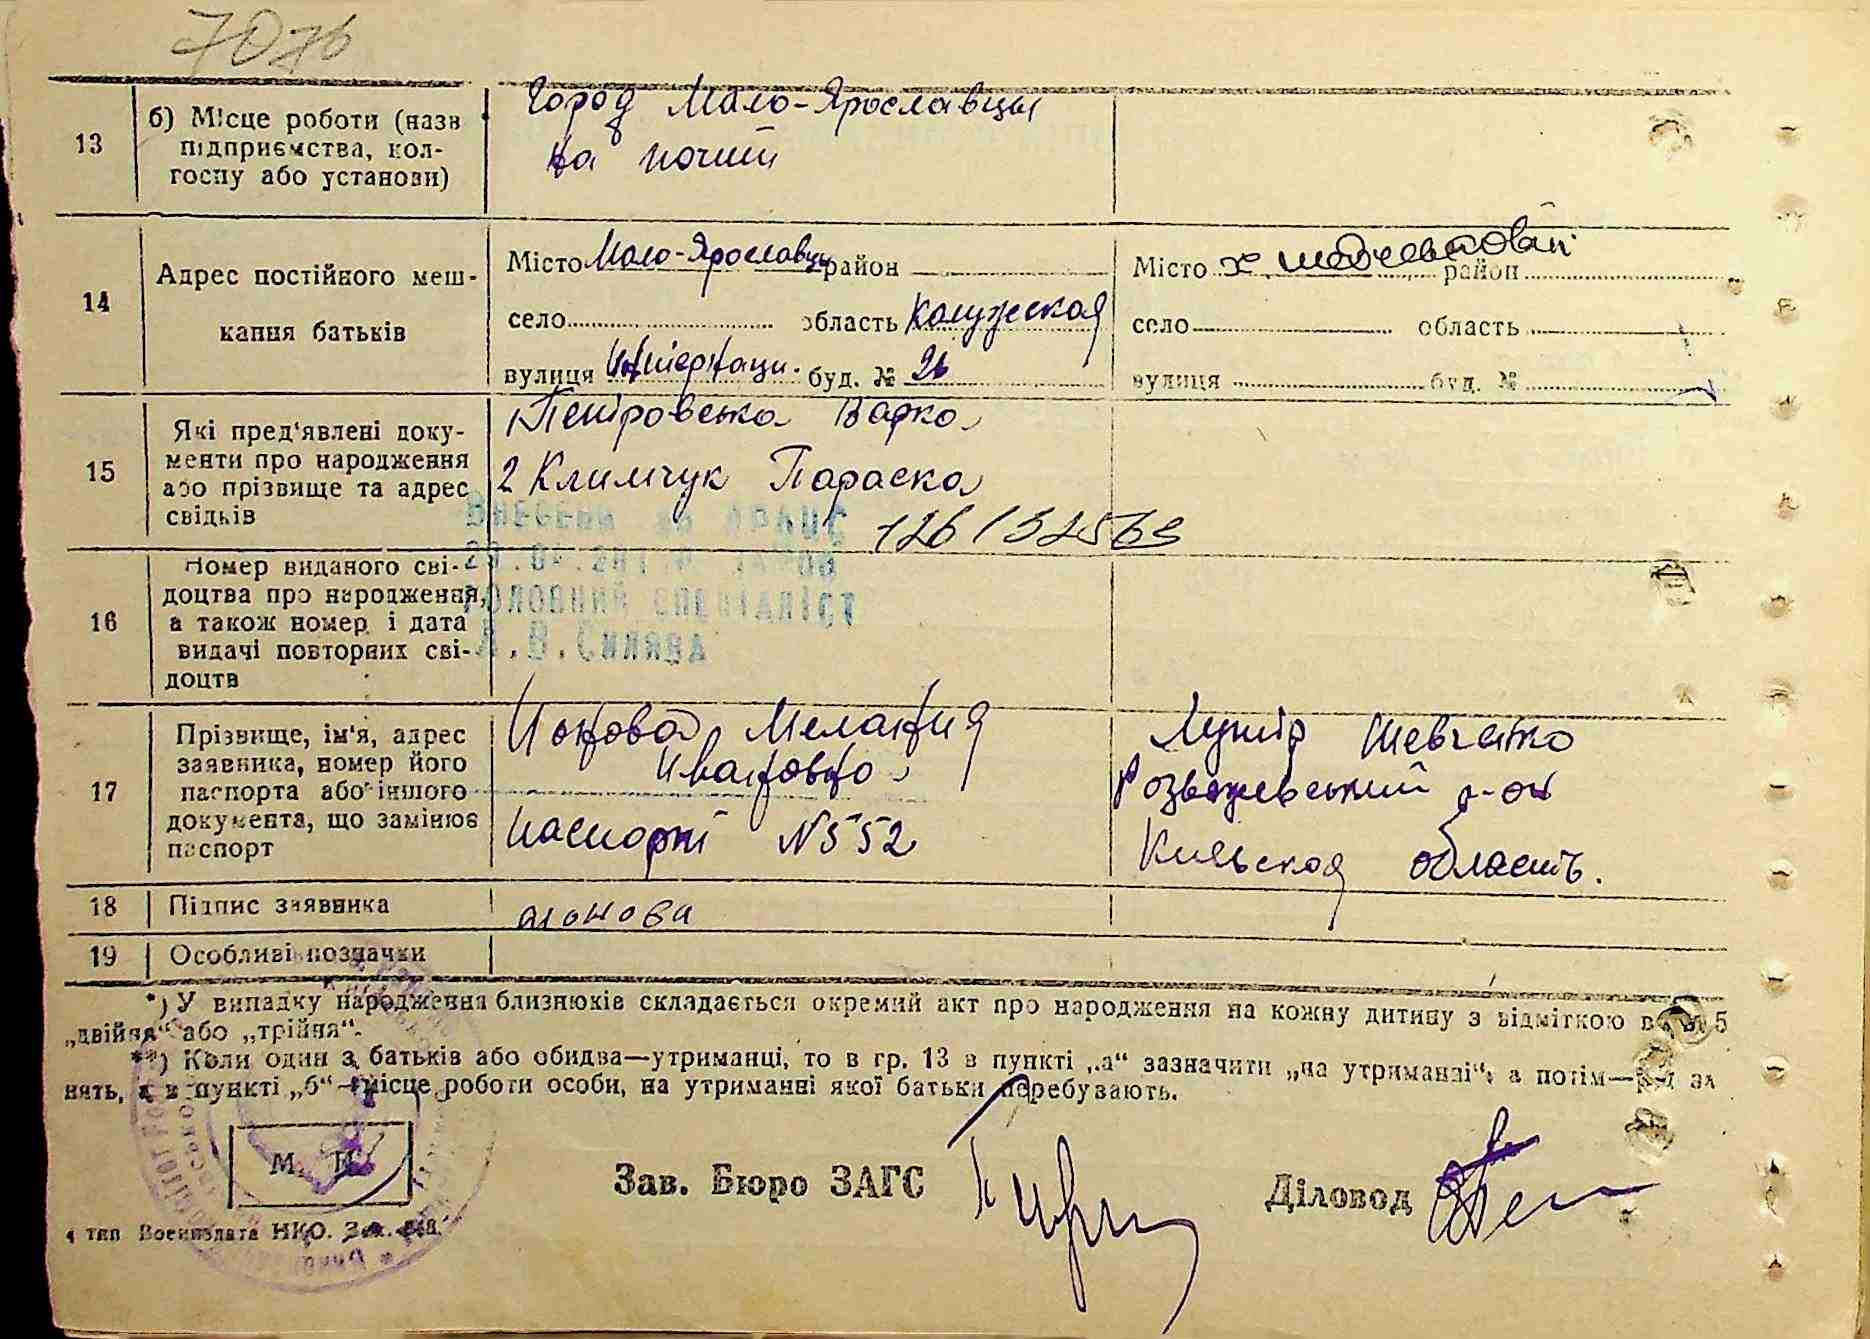 7076
13
б) Місце роботи (назв
підприємства, кол-
госпу або установи)
Город Мало-Ярославцы
на почті
14
Адрес постійного меш-
кання батьків
Місто Мало-Ярославцы район
село область Калужская
вулиця Интернаци. буд. № 26
Місто район
село область
вулиця буд. №
15
Які пред'явлені доку-
менти про народження
або прізвище та адрес
свідків
1 Петровська Варка
2 Климчук Параска
126/32563
16
Номер виданого сві-
доцтва про народження,
а також номер і дата
видачі повторних сві-
доцтв
Внесени до ДРАЦС
Головний спеціаліст
В. Синява
17
Прізвище, ім'я, адрес
заявника, номер його
паспорта або іншого
документа, що замінює
паспорт
Ионова Мелания
Ивановна
паспорт N 552
Хутір Шевченко
Розважевський р-он
Киевская область.
18
Підпис заявника
ионова
19
Особливі позначки
*) У випадку народження близнюків складається окремий акт про народження на кожну дитину з відміткою в 5
„двійня“ або „трійня“.
**) Коли один з батьків або обидва—утриманці, то в гр. 13 в пункті „а“ зазначити „на утриманні“, а потім— за
нять, а в пункті „б“—місце роботи особи, на утриманні якої батьки перебувають.
М. П.
Зав. Бюро ЗАГС
Діловод
4 тип Воениздата НКО. Зак.